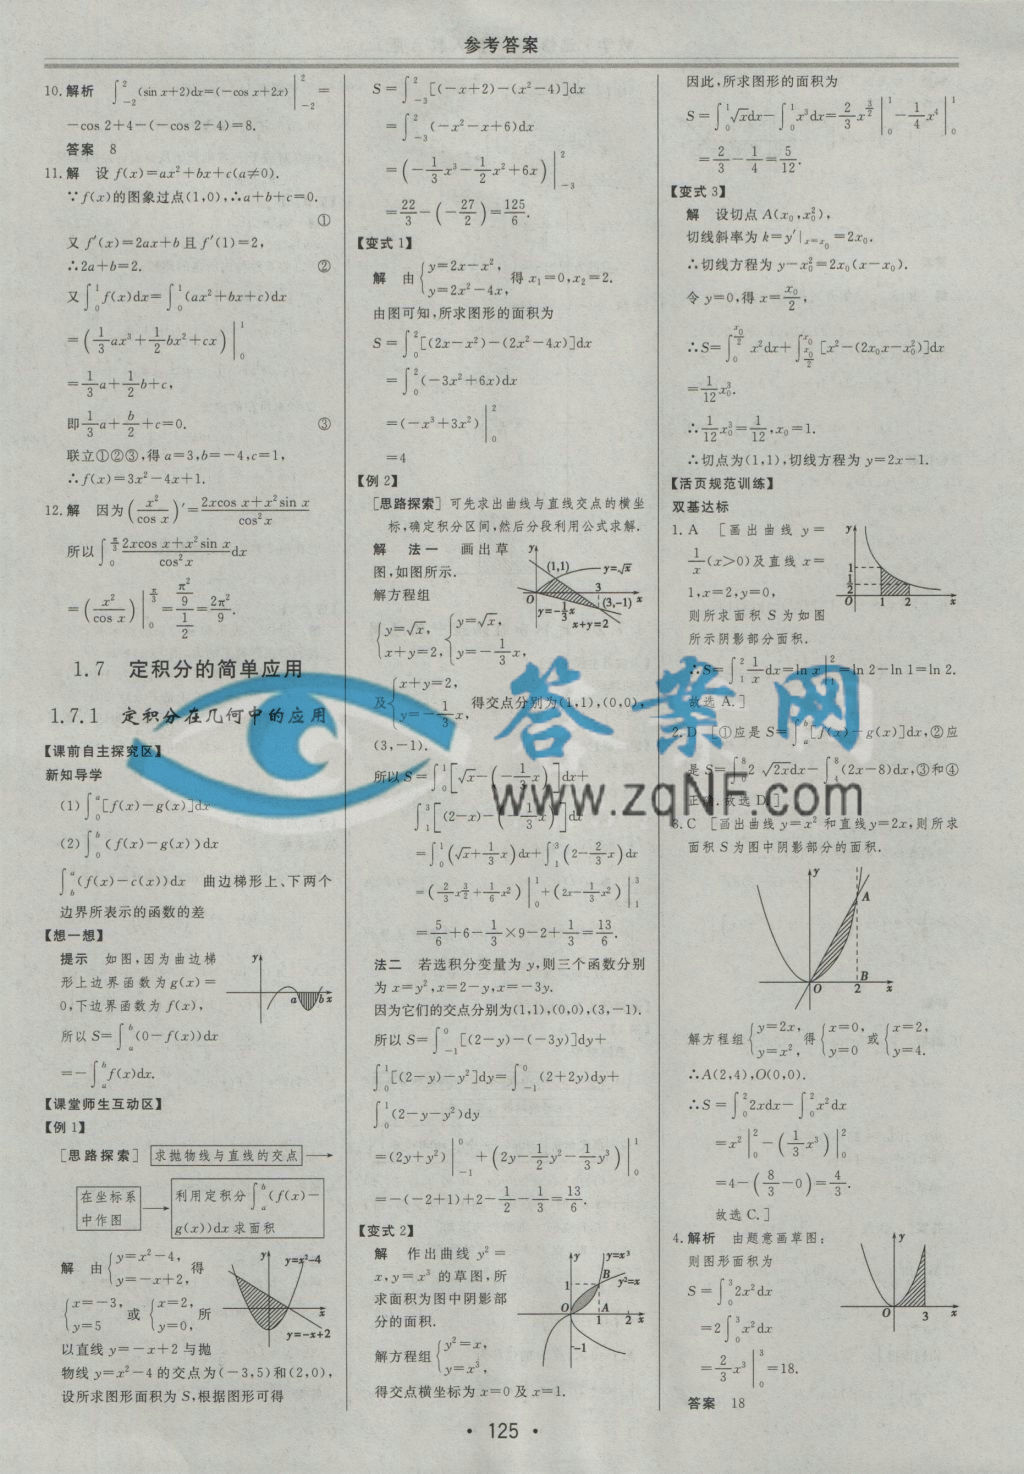 参考答案
10. 解析 ∫₋₂²(sin x+2)dx=(-cos x+2x)|₋₂²=
-cos 2+4-(-cos 2-4)=8.
答案 8
11. 解 设 f(x)=ax²+bx+c(a≠0).
∵f(x)的图象过点(1,0),∴a+b+c=0.
①
又 f′(x)=2ax+b 且 f′(1)=2,
∴2a+b=2. ②
又∫₀¹f(x)dx=∫₀¹(ax²+bx+c)dx
=(1/3 ax³+1/2 bx²+cx)|₀¹
=1/3 a+1/2 b+c,
即 1/3 a+b/2+c=0. ③
联立①②③,得 a=3,b=-4,c=1,
∴f(x)=3x²-4x+1.
12. 解 因为(x²/cos x)′=(2xcos x+x²sin x)/cos²x
所以∫₀^(π/3) (2xcos x+x²sin x)/cos²x dx
=(x²/cos x)|₀^(π/3)=(π²/9)/(1/2)=2π²/9.
1.7 定积分的简单应用
1.7.1 定积分在几何中的应用
【课前自主探究区】
新知导学
(1)∫ₐᵇ[f(x)-g(x)]dx
(2)∫ₐᵇ(f(x)-g(x))dx
∫(f(x)-c(x))dx 曲边梯形上、下两个
边界所表示的函数的差
【想一想】
提示 如图,因为曲边梯
形上边界函数为 g(x)=
0,下边界函数为 f(x),
所以 S=∫ₐᵇ(0-f(x))dx
=-∫ₐᵇf(x)dx.
y a O b x
【课堂师生互动区】
【例 1】
[思路探索] 求抛物线与直线的交点 →
在坐标系中作图 → 利用定积分∫ₐᵇ(f(x)-g(x))dx 求面积
解 由{y=x²-4, y=-x+2, 得
{x=-3, y=5 或{x=2, y=0, 所
以直线 y=-x+2 与抛
y y=x²-4 x y=-x+2
物线 y=x²-4 的交点为(-3,5)和(2,0),
设所求图形面积为 S,根据图形可得
S=∫₋₃²[(-x+2)-(x²-4)]dx
=∫₋₃²(-x²-x+6)dx
=(-1/3 x³-1/2 x²+6x)|₋₃²
=22/3-(-27/2)=125/6.
【变式 1】
解 由{y=2x-x², y=2x²-4x, 得 x₁=0,x₂=2.
由图可知,所求图形的面积为
S=∫₀²[(2x-x²)-(2x²-4x)]dx
=∫₀²(-3x²+6x)dx
=(-x³+3x²)|₀²
=4
【例 2】
[思路探索] 可先求出曲线与直线交点的横坐
标,确定积分区间,然后分段利用公式求解.
解 法一 画出草
图,如图所示.
解方程组
y (1,1) y=√x 3 O (3,-1) x y=-1/3 x x+y=2
{y=√x, x+y=2, {y=√x, y=-1/3 x,
及{x+y=2, y=-1/3 x, 得交点分别为(1,1),(0,0),
(3,-1).
所以 S=∫₀¹[√x-(-1/3 x)]dx+
∫₁³[(2-x)-(-1/3 x)]dx
=∫₀¹(√x+1/3 x)dx+∫₁³(2-2/3 x)dx
=(2/3 x^(3/2)+1/6 x²)|₀¹+(2x-1/3 x²)|₁³
=5/6+6-1/3×9-2+1/3=13/6.
法二 若选积分变量为 y,则三个函数分别
为 x=y²,x=2-y,x=-3y.
因为它们的交点分别为(1,1),(0,0),(3,-1).
所以 S=∫₋₁⁰[(2-y)-(-3y)]dy+
∫₀¹[(2-y)-y²]dy=∫₋₁⁰(2+2y)dy+
∫₀¹(2-y-y²)dy
=(2y+y²)|₋₁⁰+(2y-1/2 y²-1/3 y³)|₀¹
=-(-2+1)+2-1/2-1/3=13/6.
【变式 2】
解 作出曲线 y²=
x,y=x³ 的草图,所
求面积为图中阴影部
分的面积.
解方程组{y²=x, y=x³,
y y=x³ B y²=x 1 O A 1 2 x -1
得交点横坐标为 x=0 及 x=1.
因此,所求图形的面积为
S=∫₀¹√x dx-∫₀¹x³dx=2/3 x^(3/2)|₀¹-1/4 x⁴|₀¹
=2/3-1/4=5/12.
【变式 3】
解 设切点 A(x₀,x₀²),
切线斜率为 k=y′|ₓ₌ₓ₀=2x₀.
∴切线方程为 y-x₀²=2x₀(x-x₀).
令 y=0,得 x=x₀/2,
∴S=∫₀^(x₀/2) x²dx+∫_(x₀/2)^(x₀)[x²-(2x₀x-x₀²)]dx
=1/12 x₀³.
∴1/12 x₀³=1/12,x₀=1.
∴切点为(1,1),切线方程为 y=2x-1.
【活页规范训练】
双基达标
1. A [画出曲线 y=
1/x(x>0)及直线 x=
1,x=2,y=0,
则所求面积 S 为如图
所示阴影部分面积.
y 1 1/2 O 1 2 x
∴S=∫₁²1/x dx=ln x|₁²=ln 2-ln 1=ln 2.
故选 A.]
2. D [①应是 S=∫ₐᵇ[f(x)-g(x)]dx,②应
是 S=∫₀⁸2√2x dx-∫₄⁸(2x-8)dx,③和④
正确.故选 D.]
3. C [画出曲线 y=x² 和直线 y=2x,则所求
面积 S 为图中阴影部分的面积.
y A B O 2 x
解方程组{y=2x, y=x², 得{x=0, y=0 或{x=2, y=4.
∴A(2,4),O(0,0).
∴S=∫₀²2xdx-∫₀²x²dx
=x²|₀²-(1/3 x³)|₀²
=4-(8/3-0)=4/3.
故选 C.]
4. 解析 由题意画草图:
则图形面积为
S=∫₀³2x²dx
=2∫₀³x²dx
=2/3 x³|₀³=18.
y O 3 x
答案 18
答案网
www.zqNF.com
• 125 •